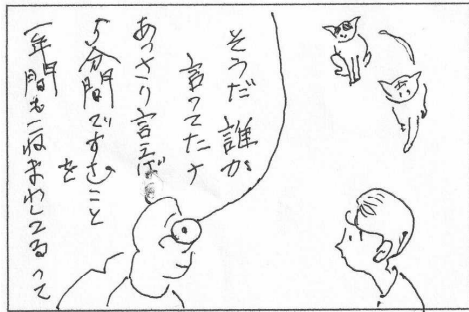 そうだ 誰か
言ってたナ
あっさり言えば
5分間ですむこと
を
一年間もこねまわしてるって